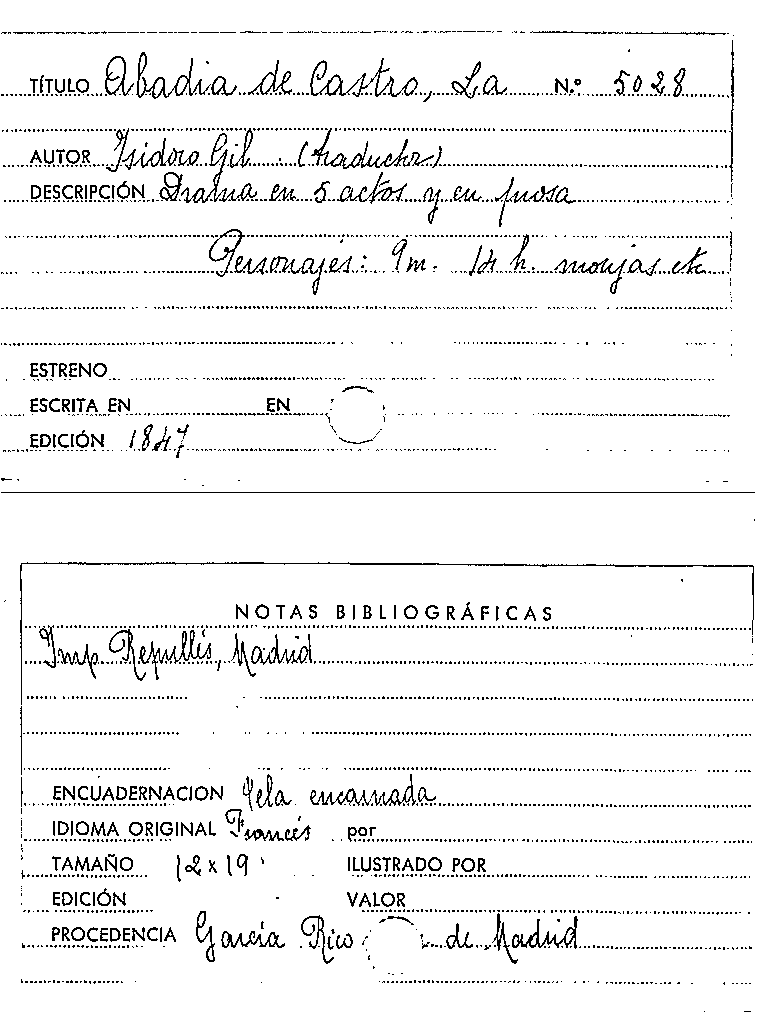 TÍTULO Abadia de Castro, La N.º 5028
AUTOR Isidoro Gil. (traductor)
DESCRIPCIÓN Drama en 5 actos y en prosa
Personajes: 9 m. 14 h. monjas etc
ESTRENO
ESCRITA EN EN
EDICIÓN 1847
NOTAS BIBLIOGRÁFICAS
Imp. Repullés, Madrid
ENCUADERNACION Tela encarnada
IDIOMA ORIGINAL Francés por
TAMAÑO 12 x 19 ILUSTRADO POR
EDICIÓN VALOR
PROCEDENCIA García Rico de Madrid